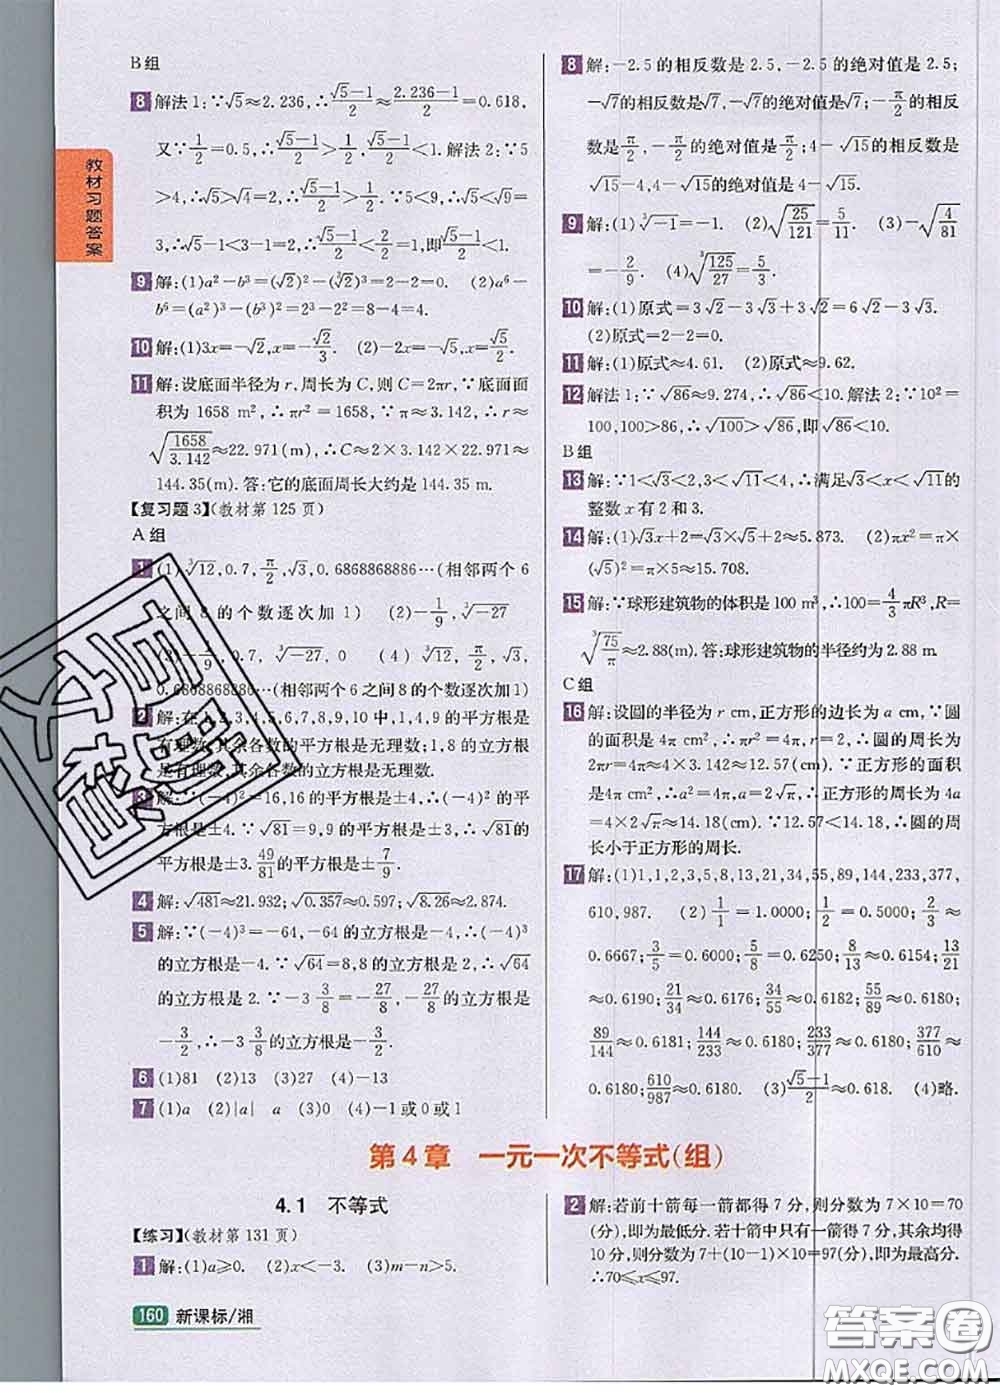 教材习题答案
B组
8 解法1:∵√5≈2.236,∴(√5-1)/2≈(2.236-1)/2=0.618,
又∵1/2=0.5,∴(√5-1)/2>1/2,(√5-1)/2<1.解法2:∵5
>4,∴√5>2,∴(√5-1)/2>1/2.∵5<9,∴√5<√9=
3,∴√5-1<3-1=2,∴(√5-1)/2<1,即(√5-1)/2<1.
9 解:(1)a²-b³=(√2)²-(∛2)³=2-2=0. (2)a⁶-
b⁶=(a²)³-(b³)²=2³-2²=8-4=4.
10 解:(1)3x=-√2,x=-√2/3. (2)-2x=√5,x=-√5/2.
11 解:设底面半径为r,周长为C,则C=2πr,∵底面面
积为1658 m²,∴πr²=1658,∵π≈3.142,∴r≈
√(1658/3.142)≈22.971(m),∴C≈2×3.142×22.971≈
144.35(m).答:它的底面周长大约是144.35 m.
【复习题3】(教材第125页)
A组
1 (1)∛12,0.7,π/2,√3,0.6868868886…(相邻两个6
之间8的个数逐次加1) (2)-1/9,∛-27
(3)-1/9,0.7,∛-27,0 (4)∛12,π/2,√3,
0.6868868886…(相邻两个6之间8的个数逐次加1)
2 解:在1,2,3,4,5,6,7,8,9,10中,1,4,9的平方根是
有理数,其余各数的平方根是无理数;1,8的立方根
是有理数,其余各数的立方根是无理数.
3 解:∵(-4)²=16,16的平方根是±4,∴(-4)²的平
方根是±4.∵√81=9,9的平方根是±3,∴√81的
平方根是±3.49/81的平方根是±7/9.
4 解:√481≈21.932;√0.357≈0.597;√8.26≈2.874.
5 解:∵(-4)³=-64,-64的立方根是-4,∴(-4)³
的立方根是-4.∵√64=8,8的立方根是2,∴√64
的立方根是2.∵-3 3/8=-27/8,-27/8的立方根是
-3/2,∴-3 3/8的立方根是-3/2.
6 (1)81 (2)13 (3)27 (4)-13
7 (1)a (2)|a| a (3)0 (4)-1或0或1
8 解:-2.5的相反数是2.5,-2.5的绝对值是2.5;
-√7的相反数是√7,-√7的绝对值是√7;-π/2的相反
数是π/2,-π/2的绝对值是π/2;4-√15的相反数是
√15-4,4-√15的绝对值是4-√15.
9 解:(1)∛-1=-1. (2)√(25/121)=5/11. (3)-√(4/81)
=-2/9. (4)∛(125/27)=5/3.
10 解:(1)原式=3√2-3√3+3√2=6√2-3√3.
(2)原式=2-2=0.
11 解:(1)原式≈4.61. (2)原式≈9.62.
12 解法1:∵√86≈9.274,∴√86<10.解法2:∵10²=
100,100>86,∴√100>√86,即√86<10.
B组
13 解:∵1<√3<2,3<√11<4,∴满足√3<x<√11的
整数x有2和3.
14 解:(1)√3x+2=√3×√5+2≈5.873. (2)πx²=π×
(√5)²=π×5≈15.708.
15 解:∵球形建筑物的体积是100 m³,∴100=4/3πR³,R=
∛(75/π)≈2.88(m).答:球形建筑物的半径约为2.88 m.
C组
16 解:设圆的半径为r cm,正方形的边长为a cm,∵圆
的面积是4π cm²,∴πr²=4π,r=2,∴圆的周长为
2πr=2×2π=4π≈12.57(cm).∵正方形的面积
是4π cm²,∴a²=4π,a=2√π,∴正方形的周长为4a
=4×2√π≈14.18(cm).∵12.57<14.18,∴圆的周
长小于正方形的周长.
17 解:(1)1,1,2,3,5,8,13,21,34,55,89,144,233,377,
610,987. (2)1/1=1.0000;1/2=0.5000;2/3≈
0.6667;3/5=0.6000;5/8=0.6250;8/13≈0.6154;13/21
≈0.6190;21/34≈0.6176;34/55≈0.6182;55/89≈0.6180;
89/144≈0.6181;144/233≈0.6180;233/377≈0.6180;377/610≈
0.6180;610/987≈0.6180. (3)(√5-1)/2≈0.618. (4)略.
第4章 一元一次不等式(组)
4.1 不等式
【练习】(教材第131页)
1 解:(1)a≥0. (2)x<-3. (3)m-n>5.
2 解:若前十箭每一箭都得7分,则分数为7×10=70
(分),即为最低分.若十箭中只有一箭得7分,其余均得
10分,则分数为7+(10-1)×10=97(分),即为最高分.
∴70≤x≤97.
160 新课标/湘
答案圈
MXQE.COM